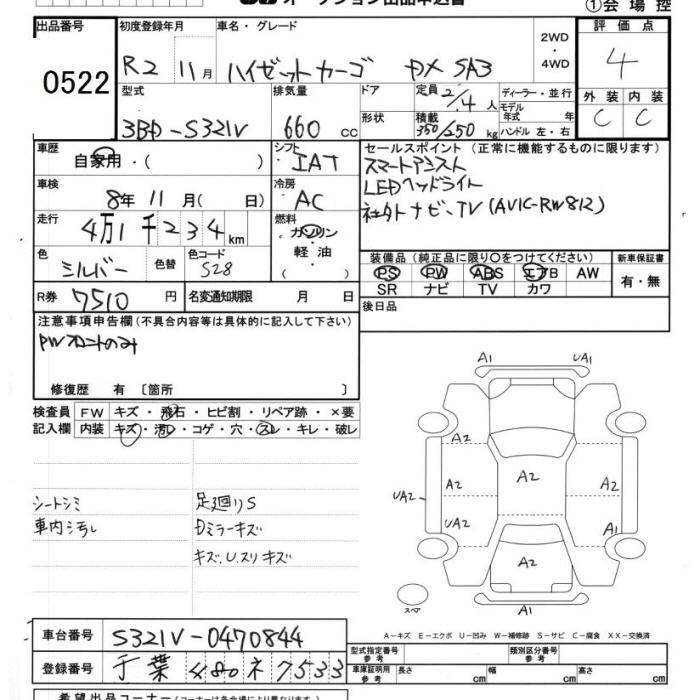 オークション出品申込書
①会場控
出品番号
0522
初度登録年月
R2 11月
車名・グレード
ハイゼットカーゴ DX SA3
2WD
・
4WD
評価点
4
外装 内装
C C
型式
3BD-S321V
排気量
660 cc
ドア
形状
定員 2/4人
積載 350/250 kg
ディーラー・並行
モデル年式 年
ハンドル 左・右
車歴
自家用・( )
シフト
IAT
セールスポイント (正常に機能するものに限ります)
スマートアシスト
LEDヘッドライト
社外ナビ、TV (AVIC-RW812)
車検
8年11月( 日)
冷房
AC
走行
4万1千234km
燃料
ガソリン
軽油
・( )
色
シルバー
色替
色コード
S28
装備品 (純正品に限り〇をつけてください)
PS PW ABS エアB AW
SR ナビ TV カワ
新車保証書
有・無
R券
7510円
名変通知期限 月 日
後日品
注意事項申告欄 (不具合内容等は具体的に記入して下さい)
PWフロントのみ
修復歴 有 〔箇所 〕
検査員
記入欄
FW キズ・飛石・ヒビ割・リペア跡・×要
内装 キズ・汚レ・コゲ・穴・スレ・キレ・破レ
シートシミ
車内汚れ
足廻りS
Dミラーキズ
キズ、U、スリキズ
A1 UA1
A2
A2
A2 A2
UA2
UA2 A1
A2
スペア
A-キズ E-エクボ U-凹み W-補修跡 S-サビ C-腐食 XX-交換済
車台番号
S321V-0470844
登録番号
千葉 480 ネ 7533
型式指定番号
参考
類別区分番号
参考
車庫証明用
参考
長さ cm
幅 cm
高さ cm
希望出品コーナー